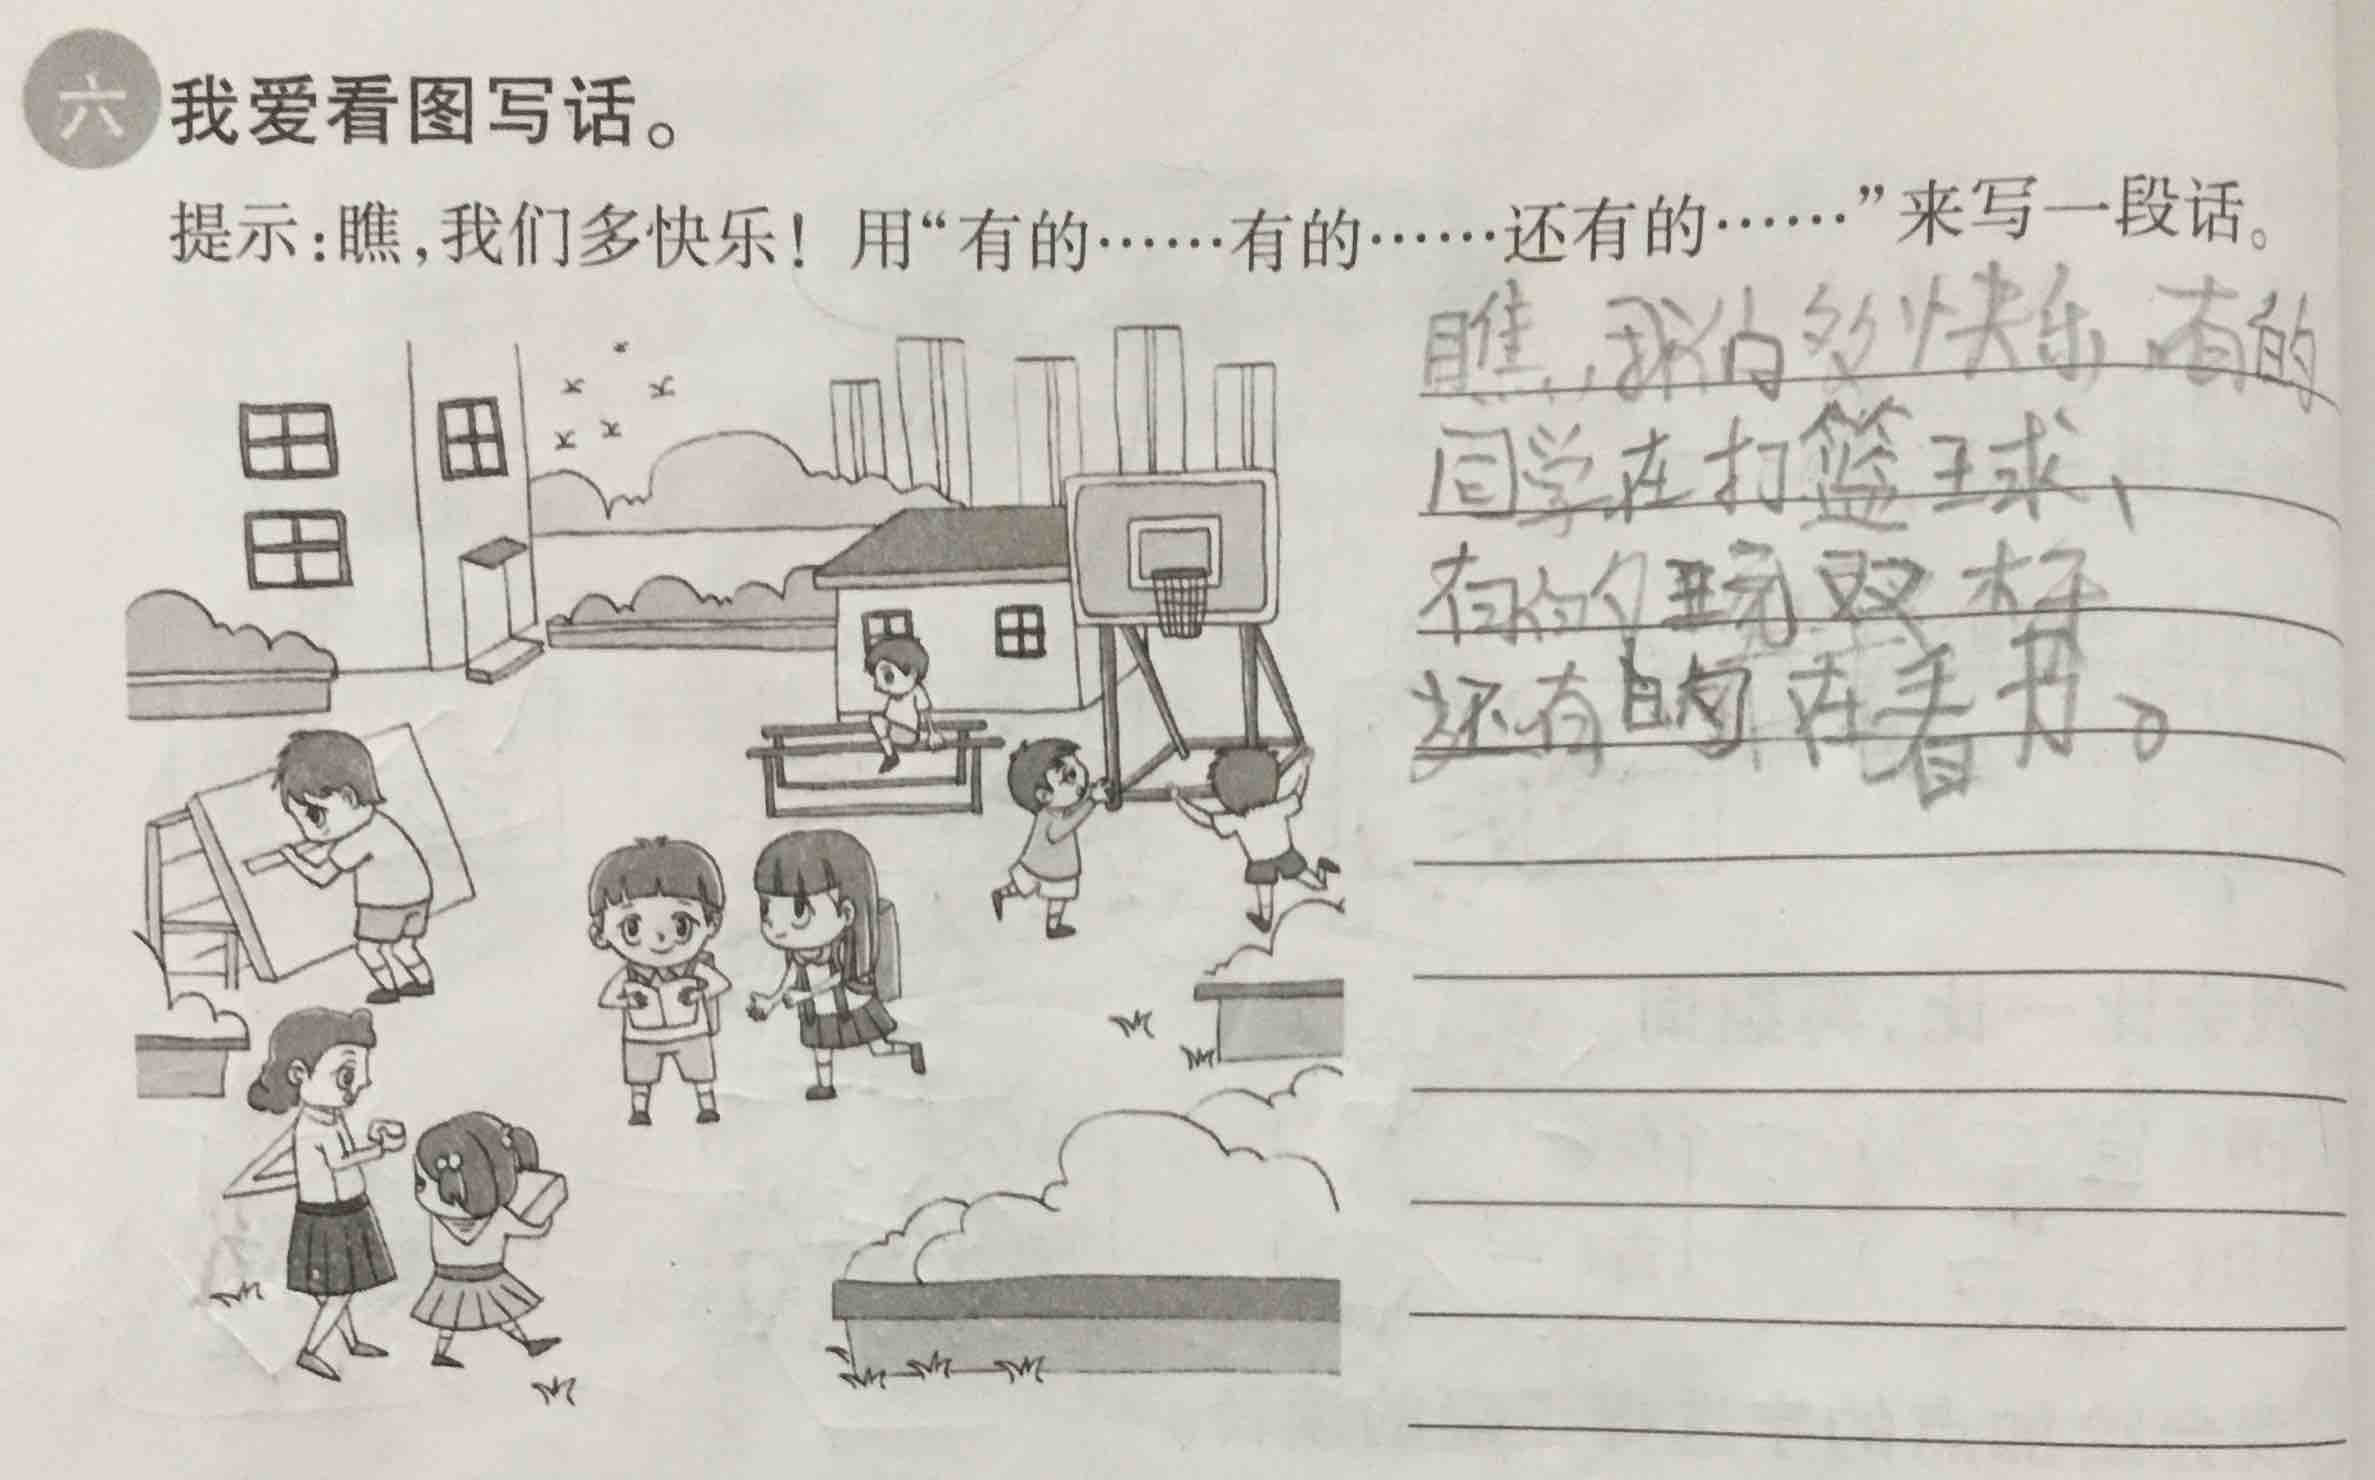 六 我爱看图写话。
提示:瞧,我们多快乐!用“有的……有的……还有的……”来写一段话。
瞧,我们多快乐,有的
同学在打篮球、
有的玩双杠
还有的在看书。